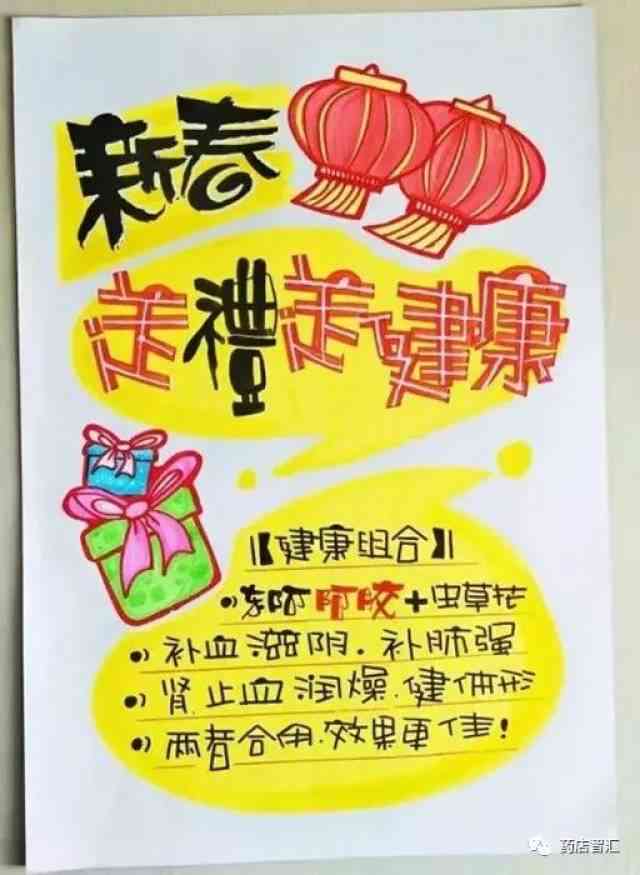 新春
送禮送健康
【健康组合】
•)东阿阿胶+虫草花
•)补血滋阴.补肺强
•)肾.止血润燥.健体形
•)两者合用.效果更佳!
药店智汇